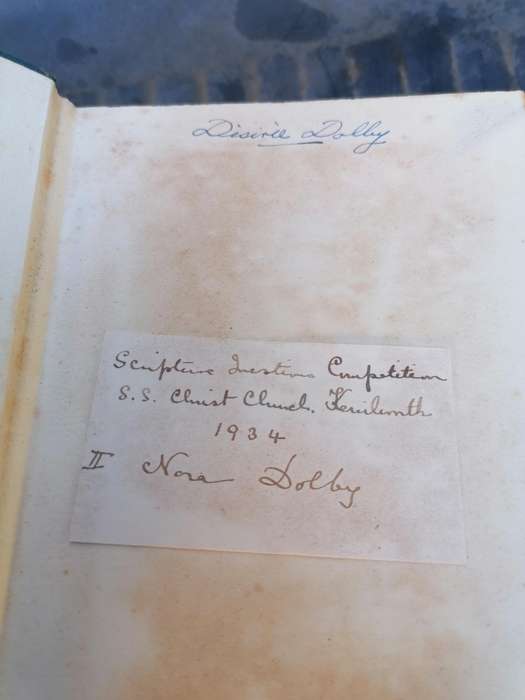 Disirèe Dolby
Scripture Questions Competition
S.S. Christ Church, Kenilworth
1934
II Nora Dolby